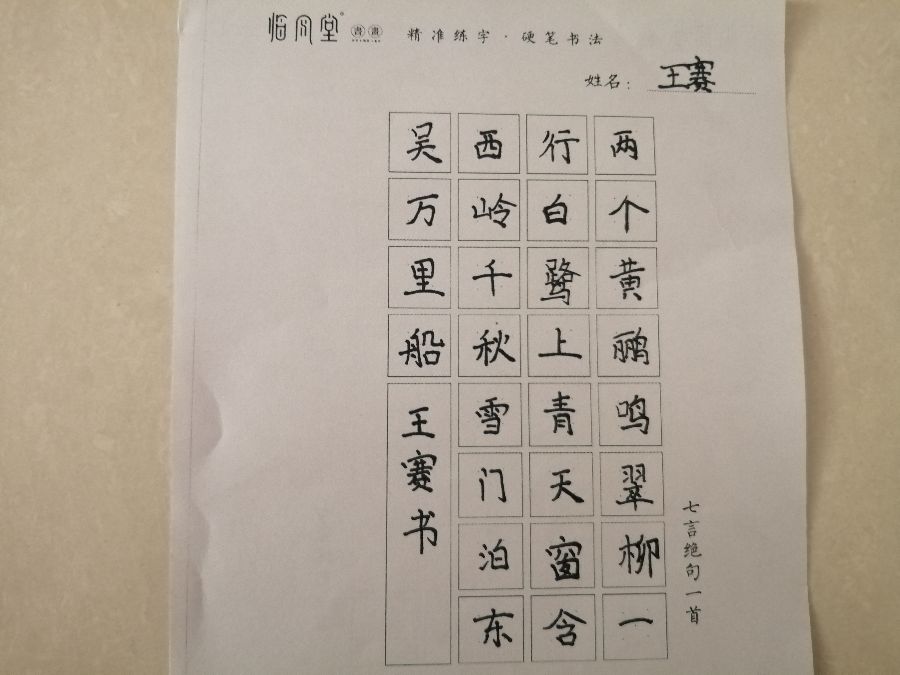 临风堂 書畫
精准练字·硬笔书法
姓名：王赛
七言绝句一首
两个黄鹂鸣翠柳一
行白鹭上青天窗含
西岭千秋雪门泊东
吴万里船
王赛书